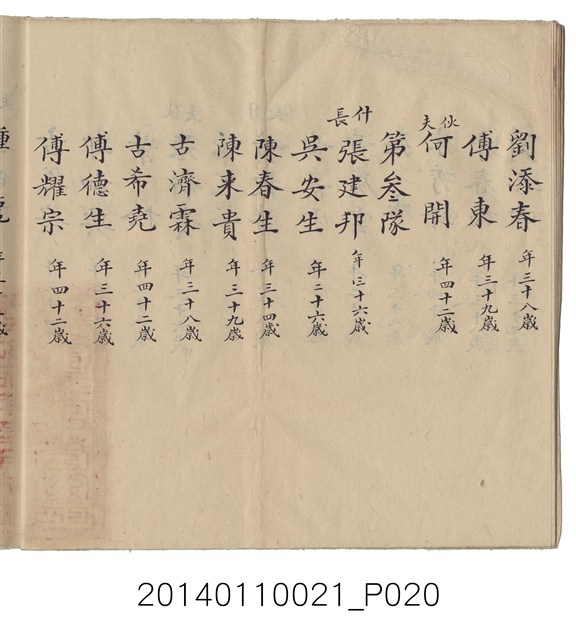 劉添春 年三十八歲
傅東 年三十九歲
伙夫 何開 年四十二歲
第叁隊
什長 張建邦 年三十六歲
吳安生 年二十六歲
陳春生 年三十四歲
陳来貴 年三十九歲
古濟霖 年三十八歲
古希堯 年四十二歲
傅德生 年三十六歲
傅耀宗 年四十二歲
20140110021_P020